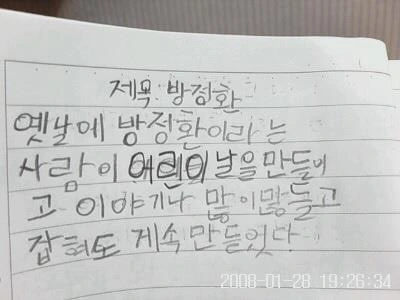 제목: 방정환
옛날에 방정환이라는
사람이 어린이날을 만들
고 이야기나 많이 만들고
잡혀도 계속 만들었다.
2008-01-28 19:26:34